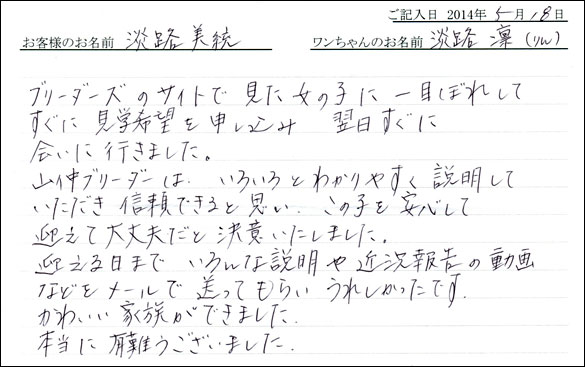 ご記入日 2014年 5月 18日
お客様のお名前 淡路 美統 ワンちゃんのお名前 淡路 凛(りん)
ブリーダーズのサイトで 見た女の子に 一目ぼれして
すぐに 見学希望を 申し込み 翌日すぐに
会いに 行きました。
山仲ブリーダーは、いろいろとわかりやすく 説明して
いただき 信頼できると 思い、この子を 安心して
迎えて大丈夫だと 決意いたしました。
迎える日まで いろんな説明や 近況報告の動画
などをメールで 送ってもらい うれしかったです.
かわいい 家族ができました.
本当に 有難うございました.